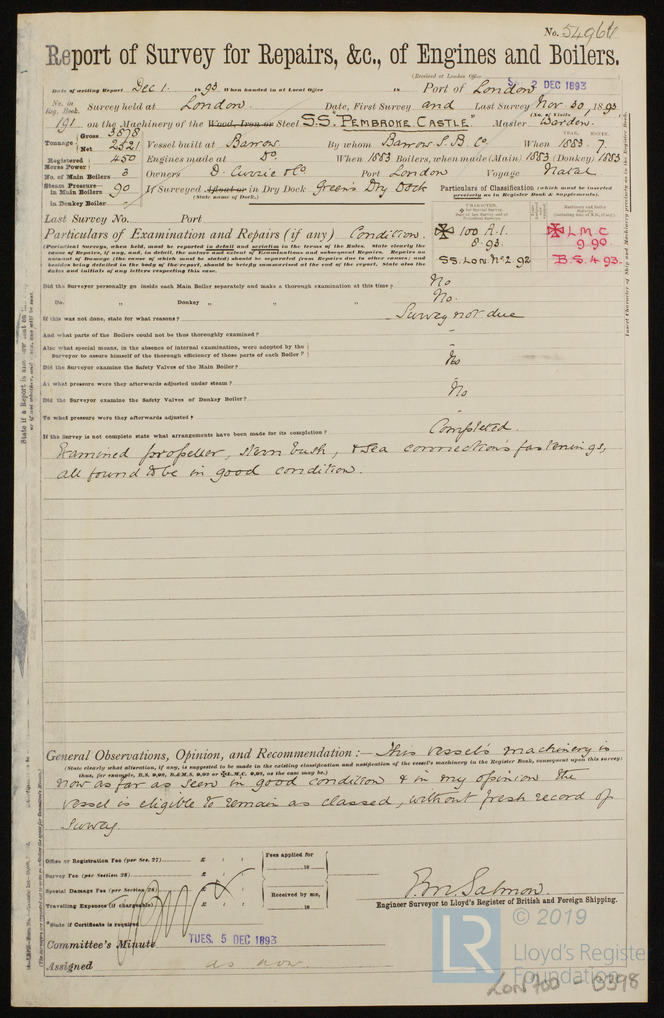 No. 54964
Report of Survey for Repairs, &c., of Engines and Boilers.
(Received at London Office 2 DEC 1893
Date of writing Report Dec 1. 1893 When handed in at Local Office 18 Port of London
No. in Reg. Book. Survey held at London. Date, First Survey and Last Survey Nov. 30, 1893
(No. of Visits
191 on the Machinery of the Wood, Iron or Steel S.S. "PEMBROKE CASTLE" Master Barden.
Tonnage Gross 3578 Net 2521 Vessel built at Barrow. By whom Barrow S. B. Co. YEAR. MONTH. When 1883. 7.
Registered Horse Power 450 Engines made at Do. When 1883 Boilers, when made (Main) 1883 (Donkey) 1883
No. of Main Boilers 3 Owners D. Currie & Co. Port London Voyage Natal
Steam Pressure in Main Boilers 90 If Surveyed Afloat or in Dry Dock Green's Dry Dock
(State name of Dock.)
in Donkey Boiler -
Particulars of Classification (which must be inserted precisely as in Register Book & Supplements).
Last Survey No. Port
Particulars of Examination and Repairs (if any) Condition.
✠ 100 A.1. 8.93.
✠ L M C 9.90.
SS. Lon. No 2. 92
B.S. 4.93.
(Periodical Surveys, when held, must be reported in detail and seriatim in the terms of the Rules. State clearly the
cause of Repairs, if any, and, in detail, the nature and extent of Examinations and subsequent Repairs. Repairs on
account of Damage (the cause of which must be stated) should be separated from Repairs due to other causes; and
besides being detailed in the body of the report, should be briefly summarised at the end of the report. State also the
dates and initials of any letters respecting this case.
Did the Surveyor personally go inside each Main Boiler separately and make a thorough examination at this time? No
Do. " Donkey " " " No.
If this was not done, state for what reasons? Survey not due
And what parts of the Boilers could not be thus thoroughly examined? -
Also what special means, in the absence of internal examination, were adopted by the
Surveyor to assure himself of the thorough efficiency of those parts of each Boiler? -
Did the Surveyor examine the Safety Valves of the Main Boiler? No
At what pressure were they afterwards adjusted under steam? -
Did the Surveyor examine the Safety Valves of Donkey Boiler? No
To what pressure were they afterwards adjusted? -
If the Survey is not complete state what arrangements have been made for its completion? Completed.
Examined propeller, stern bush, & sea connections fastenings,
all found to be in good condition.
General Observations, Opinion, and Recommendation:— This vessel's machinery is
(State clearly what alterations, if any, is suggested to be made in the existing classification and notification of the vessel's machinery in the Register Book, consequent upon this survey;
thus, for example, B.S. 9,92, B.&M.S. 9,92 or ✠L.M.C. 9,92, as the case may be.)
now as far as seen in good condition & in my opinion the
vessel is eligible to remain as classed, without fresh record of
survey.
Office or Registration Fee (per Sec. 27) £ : :
Fees applied for
18
Survey Fee (per Section 28) £ : :
Special Damage Fee (per Section 28) £ : :
Received by me,
18
Travelling Expenses (if chargeable) £ : :
E. M. Salmon.
Engineer Surveyor to Lloyd's Register of British and Foreign Shipping.
State if Certificate is required
Committee's Minute TUES. 5 DEC 1893
Assigned as now.
© 2019
LR
Lloyd's Register
Foundation
LON 700 - 0398